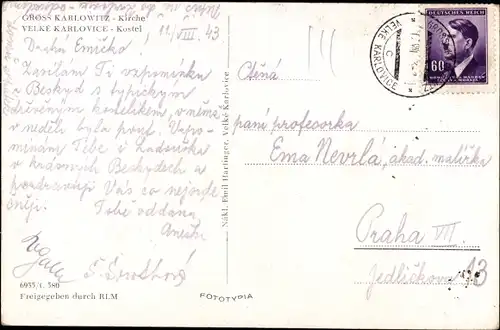 GROSS KARLOWITZ - Kirche
VELKÉ KARLOVICE - Kostel
11/VIII. 43
Drahá Emičko!
Zasílám Ti vzpomínku
z Beskyd s typickým
dřevěným kostelíkem, v němž
v neděli byla pouť. Vzpo-
mínám Tebe i
v krásných Beskydech a
pozdravuji Vás co nejsrde
čněji. Tobě oddaná
6955/f. 580
Freigegeben durch RLM
Nákl. Emil Hartinger, Velké Karlovice
FOTOTYPIA
DEUTSCHES REICH
60
VELKÉ KARLOVICE
Ctěná
paní profesorka
Ema Nevrlá, akad. malířka
Praha VII.
Jedličkova 13